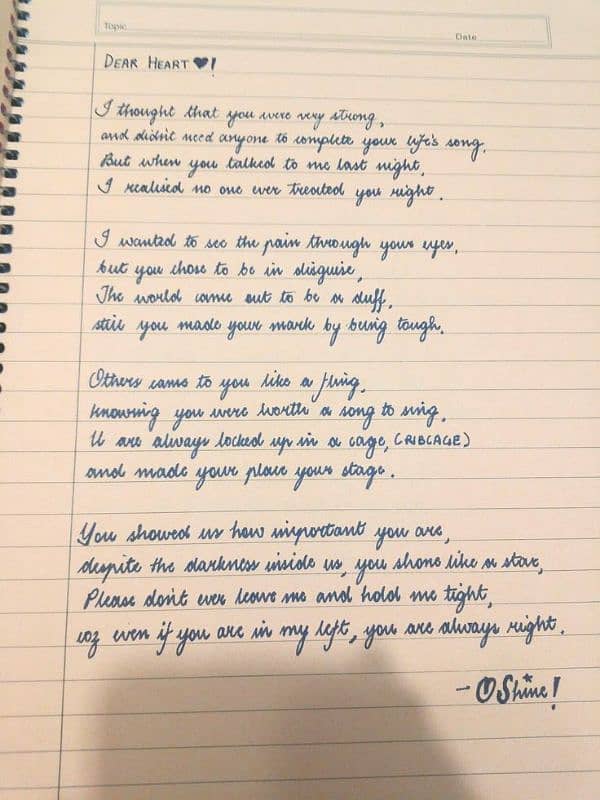 Topic
Date
DEAR HEART ♥!
I thought that you were very strong,
and didn't need anyone to complete your life's song.
But when you talked to me last night,
I realised no one ever treated you right.
I wanted to see the pain through your eyes,
but you chose to be in disguise,
The world came out to be a duff,
still you made your mark by being tough.
Others came to you like a fling,
knowing you were worth a song to sing,
U are always locked up in a cage, (RIBCAGE)
and made your place your stage.
You showed us how important you are,
despite the darkness inside us, you shone like a star,
Please don't ever leave me and hold me tight,
coz even if you are in my left, you are always right.
- OShine!